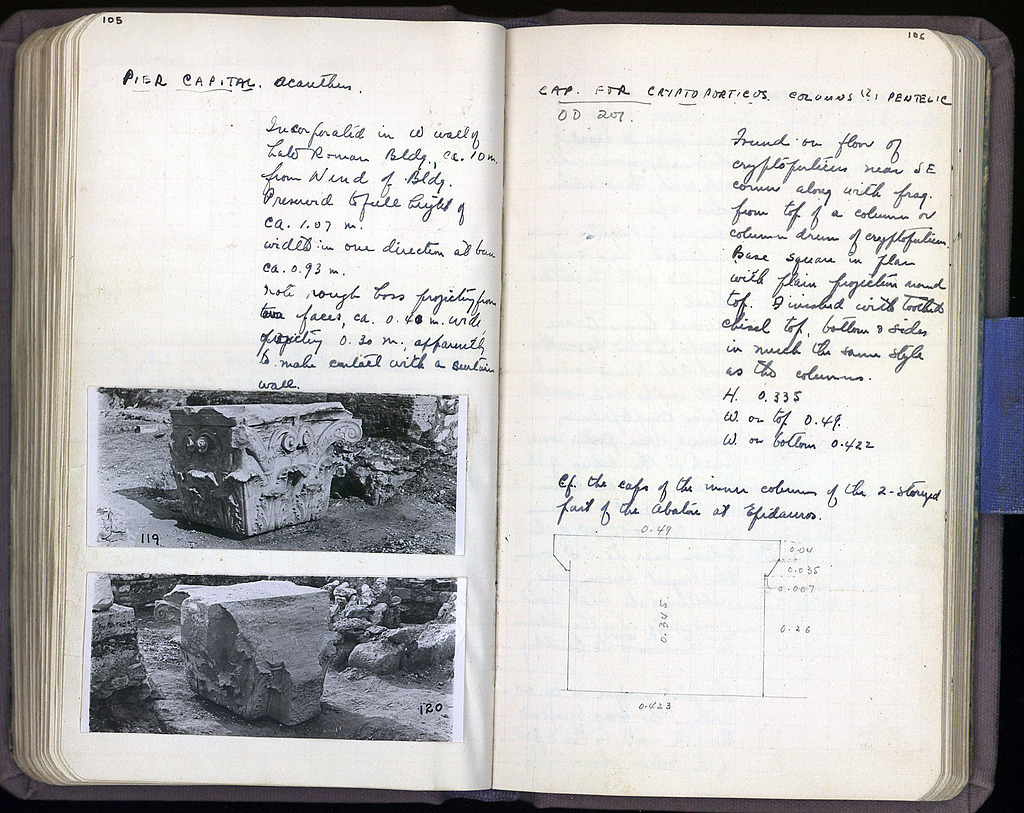 105
PIER CAPITAL. Acanthus.
Incorporated in W wall of
Late Roman Bldg., ca. 10 m.
from N end of Bldg.
Preserved to full height of
ca. 1.07 m.
width in one direction at base
ca. 0.93 m.
Note rough boss projecting from
two faces, ca. 0.40 m. wide
projecting 0.30 m. apparently
to make contact with a curtain
wall.
119
120
106
CAP. FOR CRYPTOPORTICUS COLUMNS (?) PENTELIC
OD 201.
Found on floor of
cryptoporticus near SE
corner along with frag.
from top of a column or
column drum of cryptoporticus.
Base square in plan
with plain projection around
top. Finished with toothed
chisel top, bottom & sides
in much the same style
as the columns.
H. 0.335
W. on top 0.49.
W. on bottom 0.422
Cf. the caps of the inner columns of the 2-storeyed
part of the Abaton at Epidauros.
0.49
0.04
0.035
0.007
0.345
0.26
0.423